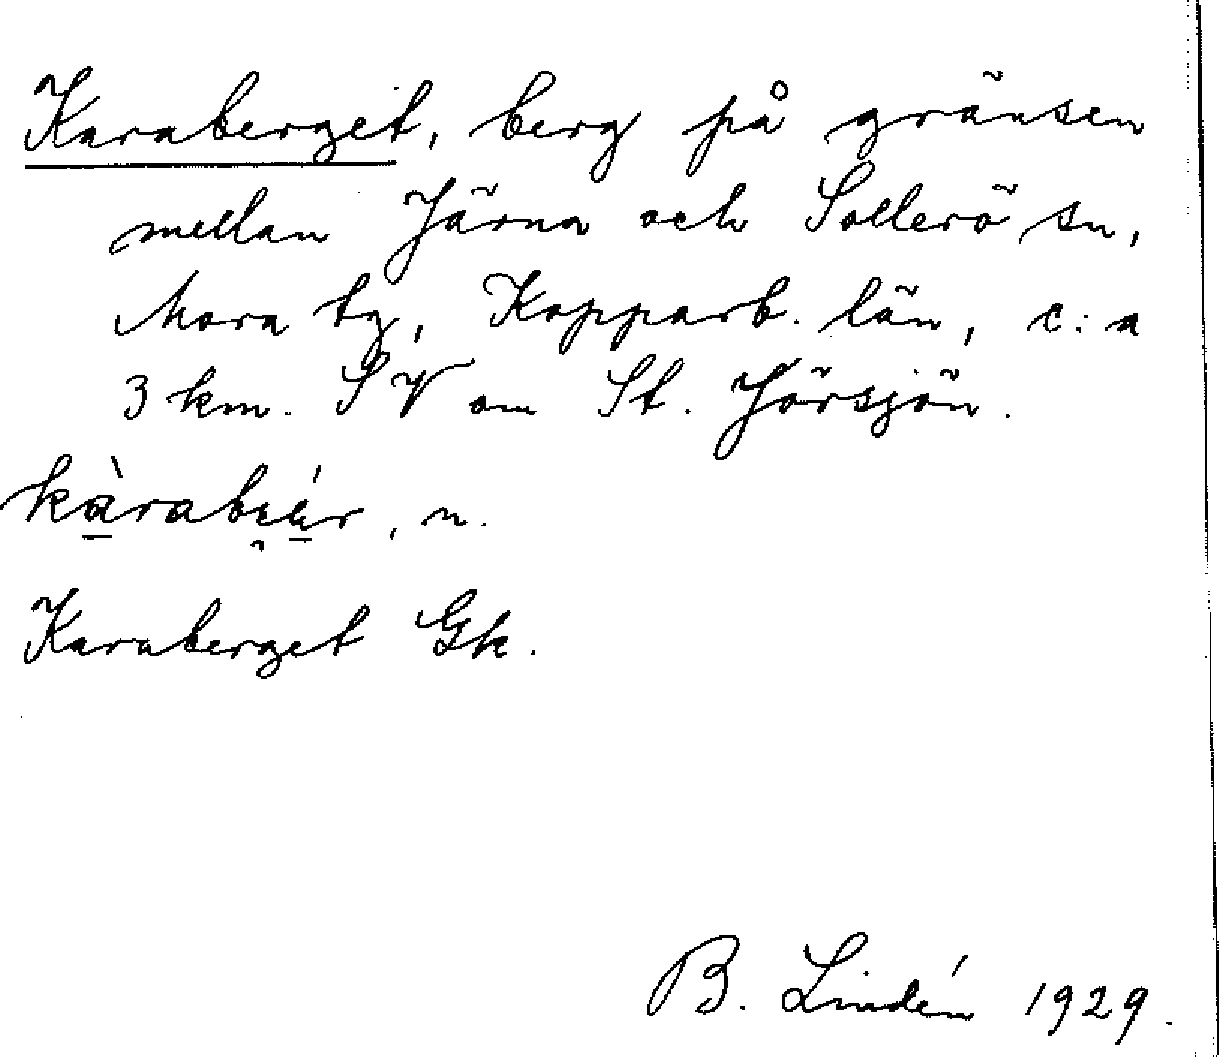 Karaberget, berg på gränsen
mellan Järna och Sollerö sn,
Mora tg, Kopparb. län, c:a
3 km. SV om St. Jörsjön.
, n.
Karaberget Gk.
B. Lindén 1929.